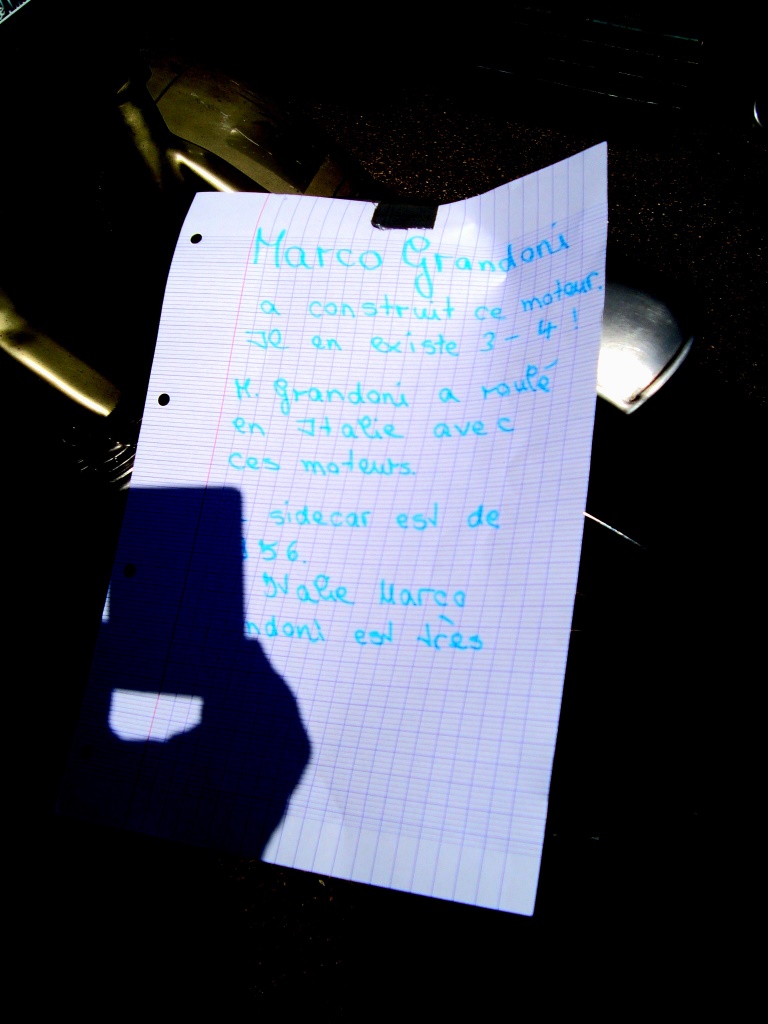 Marco Grandoni
a construit ce moteur.
Il en existe 3-4!
M. Grandoni a roulé
en Italie avec
ces moteurs.
sidecar est de
56.
Italie Marco
ndoni est très